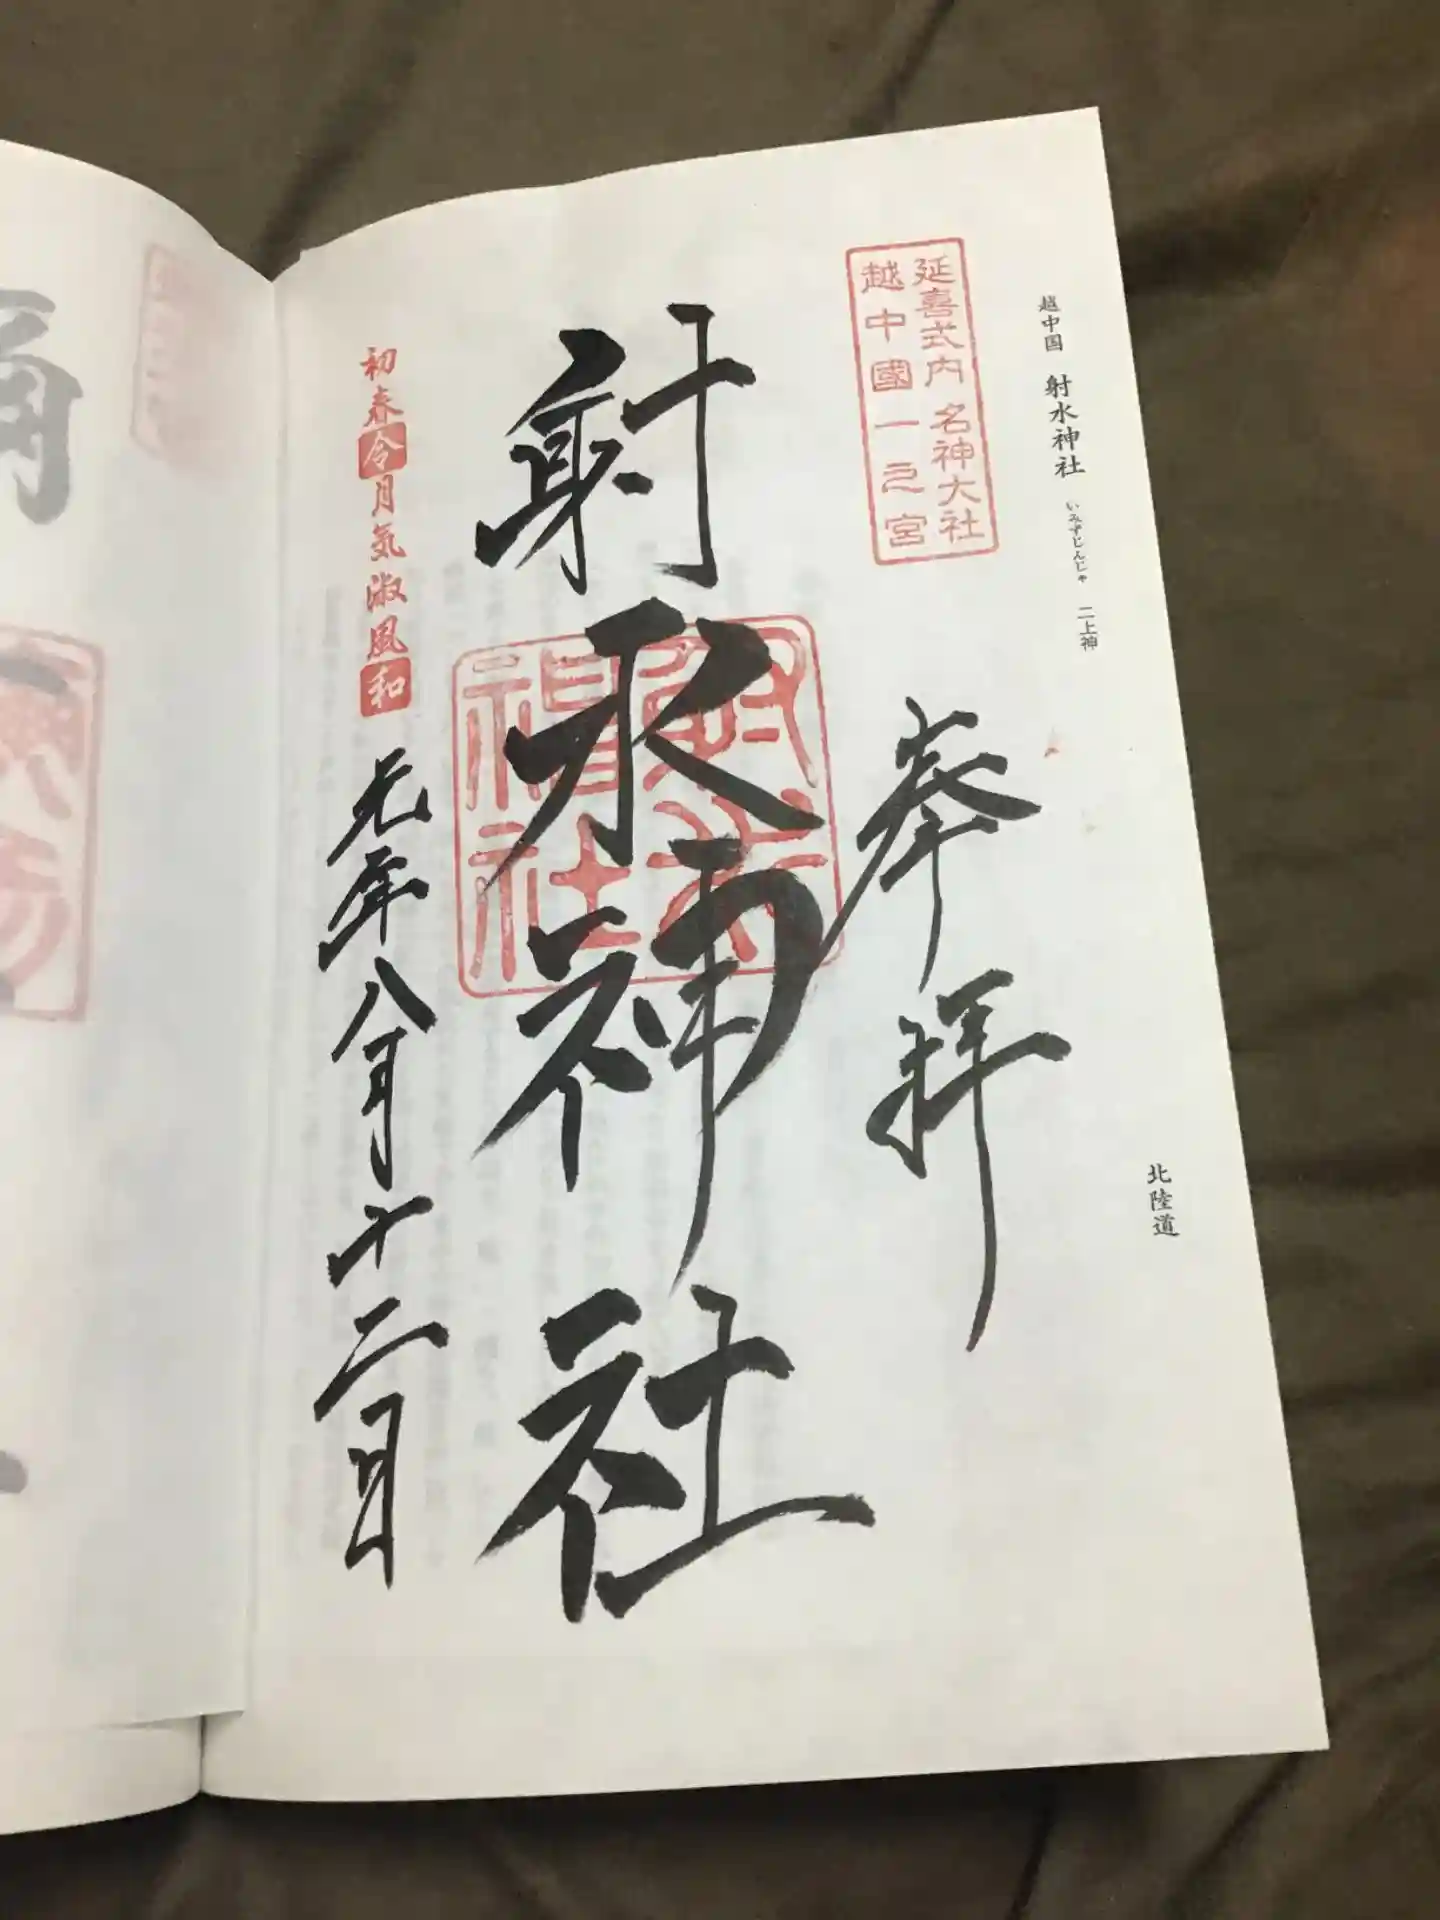 越中国 射水神社 いみずじんじゃ 二上神
北陸道
延喜式内 名神大社
越中國一之宮
奉拝
射水神社
射水神社
初春令月気淑風和
元年八月十二日